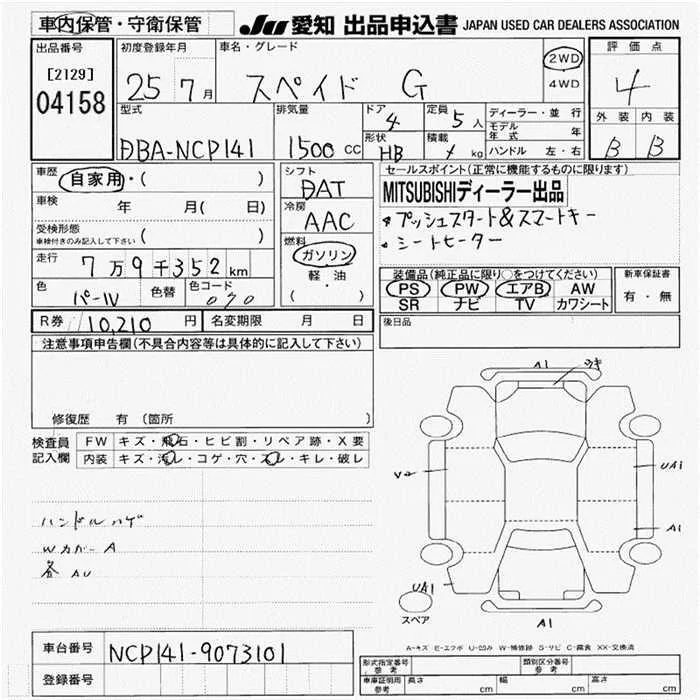 車内保管・守衛保管
JU 愛知 出品申込書 JAPAN USED CAR DEALERS ASSOCIATION
出品番号
[2129]
04158
初度登録年月
25 7月
車名・グレード
スペイド G
2WD
4WD
評価点
4
外装 内装
B B
型式
DBA-NCP141
排気量
1500 CC
ドア
4
定員
5人
形状
HB
積載
kg
ディーラー・並行
モデル年式 年
ハンドル 左・右
車歴
自家用・( )
車検
年 月( 日)
受検形態
車検付きのみ記入して下さい ( )
走行
7万9千352km
色
パール
色替
色コード
070
シフト
DAT
冷房
AAC
燃料
ガソリン
軽油
( )
セールスポイント(正常に機能するものに限ります)
MITSUBISHIディーラー出品
プッシュスタート&スマートキー
シートヒーター
装備品(純正品に限り○をつけてください)
PS PW エアB AW
SR ナビ TV カワシート
新車保証書
有・無
R券 10,210円
名変期限 月 日
後日品
注意事項申告欄(不具合内容等は具体的に記入して下さい)
修復歴 有 (箇所 )
検査員記入欄
FW キズ・飛石・ヒビ割・リペア跡・X要
内装 キズ・汚レ・コゲ・穴・スレ・キレ・破レ
ハンドルハゲ
Wカバー A
各 AU
A1
UA1
A1
UA1
A1
スペア
A-キズ E-エクボ U-凹み W-補修跡 S-サビ C-腐食 XX-交換済
車台番号 NCP141-9073101
登録番号
形式指定番号 参考
類別区分番号 参考
車庫証明用 参考
長さ cm
幅 cm
高さ cm